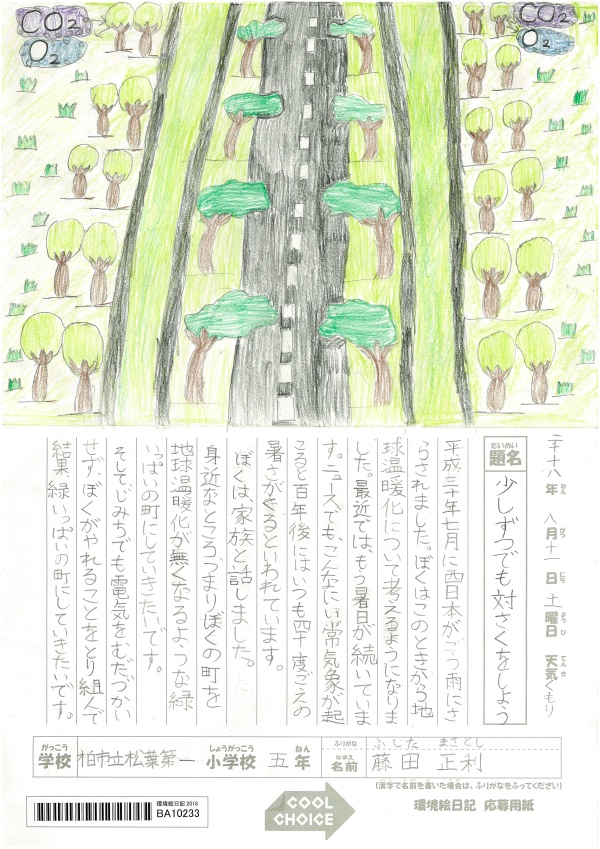 CO2
O2
CO2
O2
二千十八年 八月十一日 土曜日 天気くもり
ねん がつ にち ようび てんき
だいめい
題名 少しずつでも対さくをしよう
平成三十年七月に西日本がごう雨にさ
らされました。ぼくはこのときから地
球温暖化について考えるようになりま
した。最近では、もう暑日が続いていま
す。ニュースでも、こんなにい常気象が起
こると百年後にはいつも四十度ごえの
暑さがくるといわれています。
ぼくは、家族と話しました。
身近なところ、つまりぼくの町を
地球温暖化が無くなるような緑
いっぱいの町にしていきたいです。
そして、じみちでも電気をむだづかい
せず、ぼくがやれることをとり組んで
結果、緑いっぱいの町にしていきたいです。
がっこう しょうがっこう ねん ふりがな ふじた まさとし
学校 柏市立松葉第一 小学校 五年 なまえ 名前 藤田 正利
(漢字で名前を書いた場合は、ふりがなをふってください)
環境絵日記 応募用紙
環境絵日記2018
BA10233
COOL
CHOICE